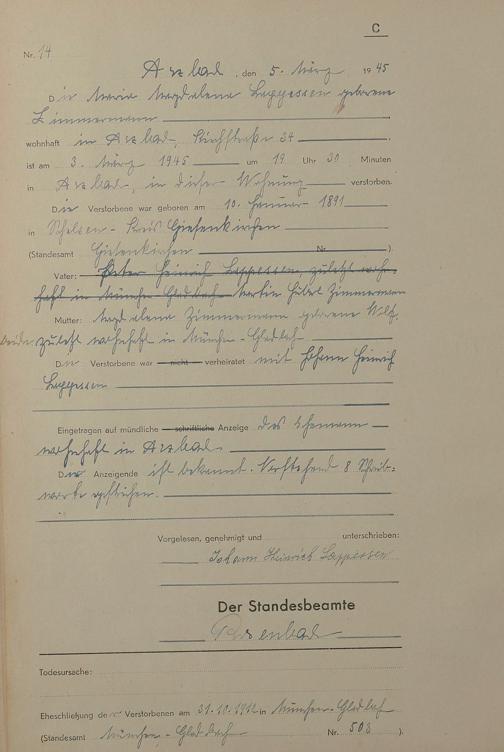 C
Nr. 14
Arzbach, den 5. März 1945
Die Maria Magdalena Lappessen geborene
Zimmermann
wohnhaft in Arzbach, Kirchstraße 34
ist am 3. März 1945 um 19 Uhr 30 Minuten
in Arzbach, in dieser Wohnung verstorben.
Die Verstorbene war geboren am 10. Januar 1891
in Schelsen - Kreis Giesenkirchen
(Standesamt Giesenkirchen Nr. ).
Vater: Peter Heinrich Lappessen, zuletzt wohn-
haft in München-Gladbach Martin Hubert Zimmermann
Mutter: Magdalena Zimmermann geborene
beide zuletzt wohnhaft in München-Gladbach
Die Verstorbene war nicht verheiratet mit Johann Heinrich
Lappessen
Eingetragen auf mündliche schriftliche Anzeige des Ehemann
wohnhaft in Arzbach
D Anzeigende ist bekannt. Vorstehend 8 Schreib-
worte gestrichen.
Vorgelesen, genehmigt und unterschrieben:
Johann Heinrich Lappessen
Der Standesbeamte
Todesursache:
Eheschließung der Verstorbenen am 31.10.1912 in München-Gladbach
(Standesamt München-Gladbach Nr. 508 ).